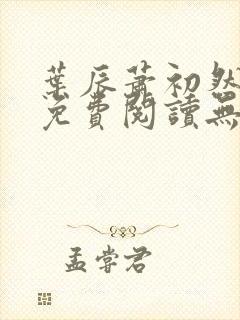 葉辰蕭初然
免費閱讀無
孟嘗君